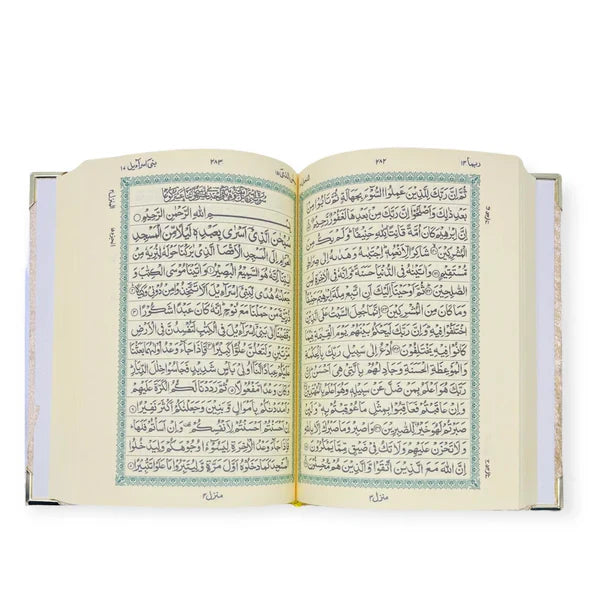 ربما ١٤
٢٨٢
ثُمَّ اِنَّ رَبَّكَ لِلَّذِيْنَ عَمِلُوا السُّوْٓءَ بِجَهَالَةٍ ثُمَّ تَابُوْا مِنْۢ
بَعْدِ ذٰلِكَ وَاَصْلَحُوْٓا اِنَّ رَبَّكَ مِنْۢ بَعْدِهَا لَغَفُوْرٌ رَّحِيْمٌ
اِنَّ اِبْرٰهِيْمَ كَانَ اُمَّةً قَانِتًا لِّلّٰهِ حَنِيْفًا وَلَمْ يَكُ مِنَ
الْمُشْرِكِيْنَ شَاكِرًا لِّاَنْعُمِهٖ اِجْتَبٰىهُ وَهَدٰىهُ اِلٰى صِرَاطٍ
مُّسْتَقِيْمٍ وَاٰتَيْنٰهُ فِى الدُّنْيَا حَسَنَةً وَاِنَّهٗ فِى الْاٰخِرَةِ لَمِنَ
الصّٰلِحِيْنَ ثُمَّ اَوْحَيْنَآ اِلَيْكَ اَنِ اتَّبِعْ مِلَّةَ اِبْرٰهِيْمَ حَنِيْفًا
وَمَا كَانَ مِنَ الْمُشْرِكِيْنَ اِنَّمَا جُعِلَ السَّبْتُ عَلَى الَّذِيْنَ
اخْتَلَفُوْا فِيْهِ وَاِنَّ رَبَّكَ لَيَحْكُمُ بَيْنَهُمْ يَوْمَ الْقِيٰمَةِ فِيْمَا
كَانُوْا فِيْهِ يَخْتَلِفُوْنَ اُدْعُ اِلٰى سَبِيْلِ رَبِّكَ بِالْحِكْمَةِ
وَالْمَوْعِظَةِ الْحَسَنَةِ وَجَادِلْهُمْ بِالَّتِيْ هِيَ اَحْسَنُ اِنَّ
رَبَّكَ هُوَ اَعْلَمُ بِمَنْ ضَلَّ عَنْ سَبِيْلِهٖ وَهُوَ اَعْلَمُ بِالْمُهْتَدِيْنَ
وَاِنْ عَاقَبْتُمْ فَعَاقِبُوْا بِمِثْلِ مَا عُوْقِبْتُمْ بِهٖ وَلَئِنْ
صَبَرْتُمْ لَهُوَ خَيْرٌ لِّلصّٰبِرِيْنَ وَاصْبِرْ وَمَا صَبْرُكَ اِلَّا بِاللّٰهِ
وَلَا تَحْزَنْ عَلَيْهِمْ وَلَا تَكُ فِيْ ضَيْقٍ مِّمَّا يَمْكُرُوْنَ
اِنَّ اللّٰهَ مَعَ الَّذِيْنَ اتَّقَوْا وَّالَّذِيْنَ هُمْ مُّحْسِنُوْنَ
منزل ٣
٢٨٣
بنی اسرآءیل ١٧
بِسْمِ اللّٰهِ الرَّحْمٰنِ الرَّحِيْمِ
سُبْحٰنَ الَّذِيْٓ اَسْرٰى بِعَبْدِهٖ لَيْلًا مِّنَ الْمَسْجِدِ
الْحَرَامِ اِلَى الْمَسْجِدِ الْاَقْصَا الَّذِيْ بٰرَكْنَا حَوْلَهٗ لِنُرِيَهٗ مِنْ
اٰيٰتِنَا اِنَّهٗ هُوَ السَّمِيْعُ الْبَصِيْرُ وَاٰتَيْنَا مُوْسَى الْكِتٰبَ وَ
جَعَلْنٰهُ هُدًى لِّبَنِيْٓ اِسْرَآءِيْلَ اَلَّا تَتَّخِذُوْا مِنْ دُوْنِيْ وَكِيْلًا
ذُرِّيَّةَ مَنْ حَمَلْنَا مَعَ نُوْحٍ اِنَّهٗ كَانَ عَبْدًا شَكُوْرًا
وَقَضَيْنَآ اِلٰى بَنِيْٓ اِسْرَآءِيْلَ فِى الْكِتٰبِ لَتُفْسِدُنَّ فِى الْاَرْضِ
مَرَّتَيْنِ وَلَتَعْلُنَّ عُلُوًّا كَبِيْرًا فَاِذَا جَآءَ وَعْدُ اُوْلٰىهُمَا بَعَثْنَا
عَلَيْكُمْ عِبَادًا لَّنَآ اُولِيْ بَاْسٍ شَدِيْدٍ فَجَاسُوْا خِلٰلَ الدِّيَارِ
وَكَانَ وَعْدًا مَّفْعُوْلًا ثُمَّ رَدَدْنَا لَكُمُ الْكَرَّةَ عَلَيْهِمْ
وَاَمْدَدْنٰكُمْ بِاَمْوَالٍ وَّبَنِيْنَ وَجَعَلْنٰكُمْ اَكْثَرَ نَفِيْرًا
اِنْ اَحْسَنْتُمْ اَحْسَنْتُمْ لِاَنْفُسِكُمْ وَاِنْ اَسَاْتُمْ فَلَهَا
فَاِذَا جَآءَ وَعْدُ الْاٰخِرَةِ لِيَسُوْٓءٗا وُجُوْهَكُمْ وَلِيَدْخُلُوا
الْمَسْجِدَ كَمَا دَخَلُوْهُ اَوَّلَ مَرَّةٍ وَّلِيُتَبِّرُوْا مَا عَلَوْا تَتْبِيْرًا
منزل ٤